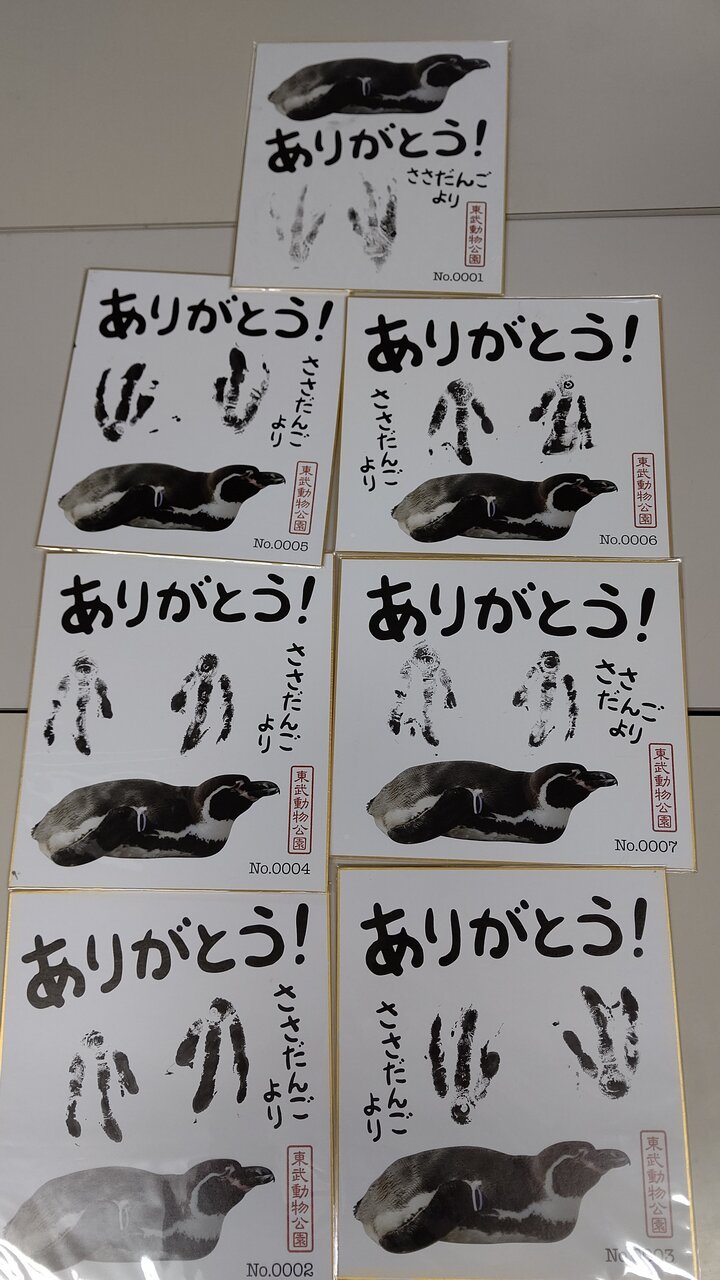 ありがとう!
ささだんご
より
東武動物公園
No.0001
ありがとう!
ささだんご
より
東武動物公園
No.0005
ありがとう!
ささだんご
より
東武動物公園
No.0006
ありがとう!
ささだんご
より
東武動物公園
No.0004
ありがとう!
ささ
だんご
より
東武動物公園
No.0007
ありがとう!
ささだんご
より
東武動物公園
No.0002
ありがとう!
ささだんご
より
東武動物公園
No.0003